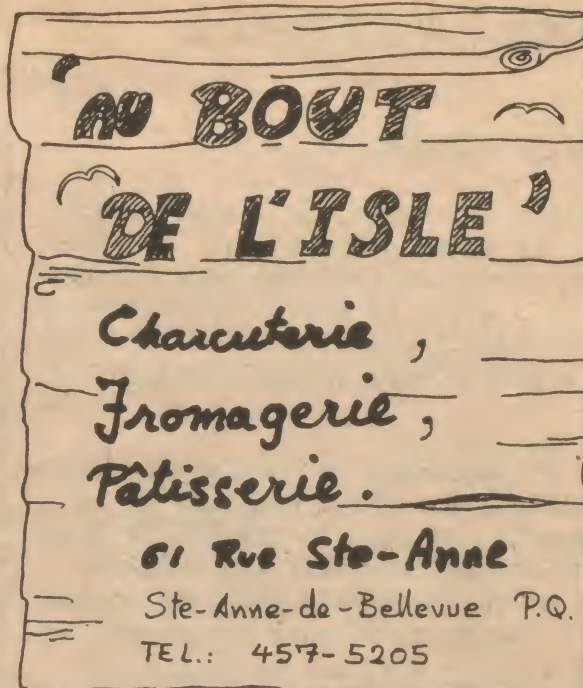 'AU BOUT
DE L'ISLE'
Charcuterie,
Fromagerie,
Pâtisserie.
61 Rue Ste-Anne
Ste-Anne-de-Bellevue P.Q.
TEL.: 457-5205